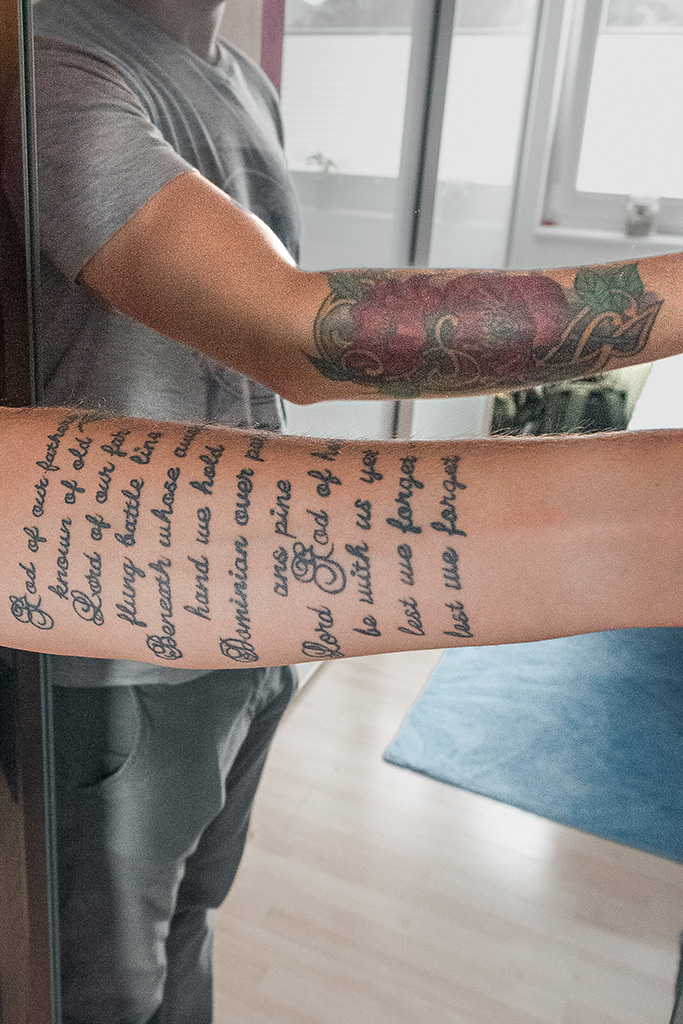 God of our
known of old
Lord of our far
flung battle line
Beneath whose
hand we hold
Dominian over
and pine
Lord God of
be with us yet
lest we forget
lest we forget